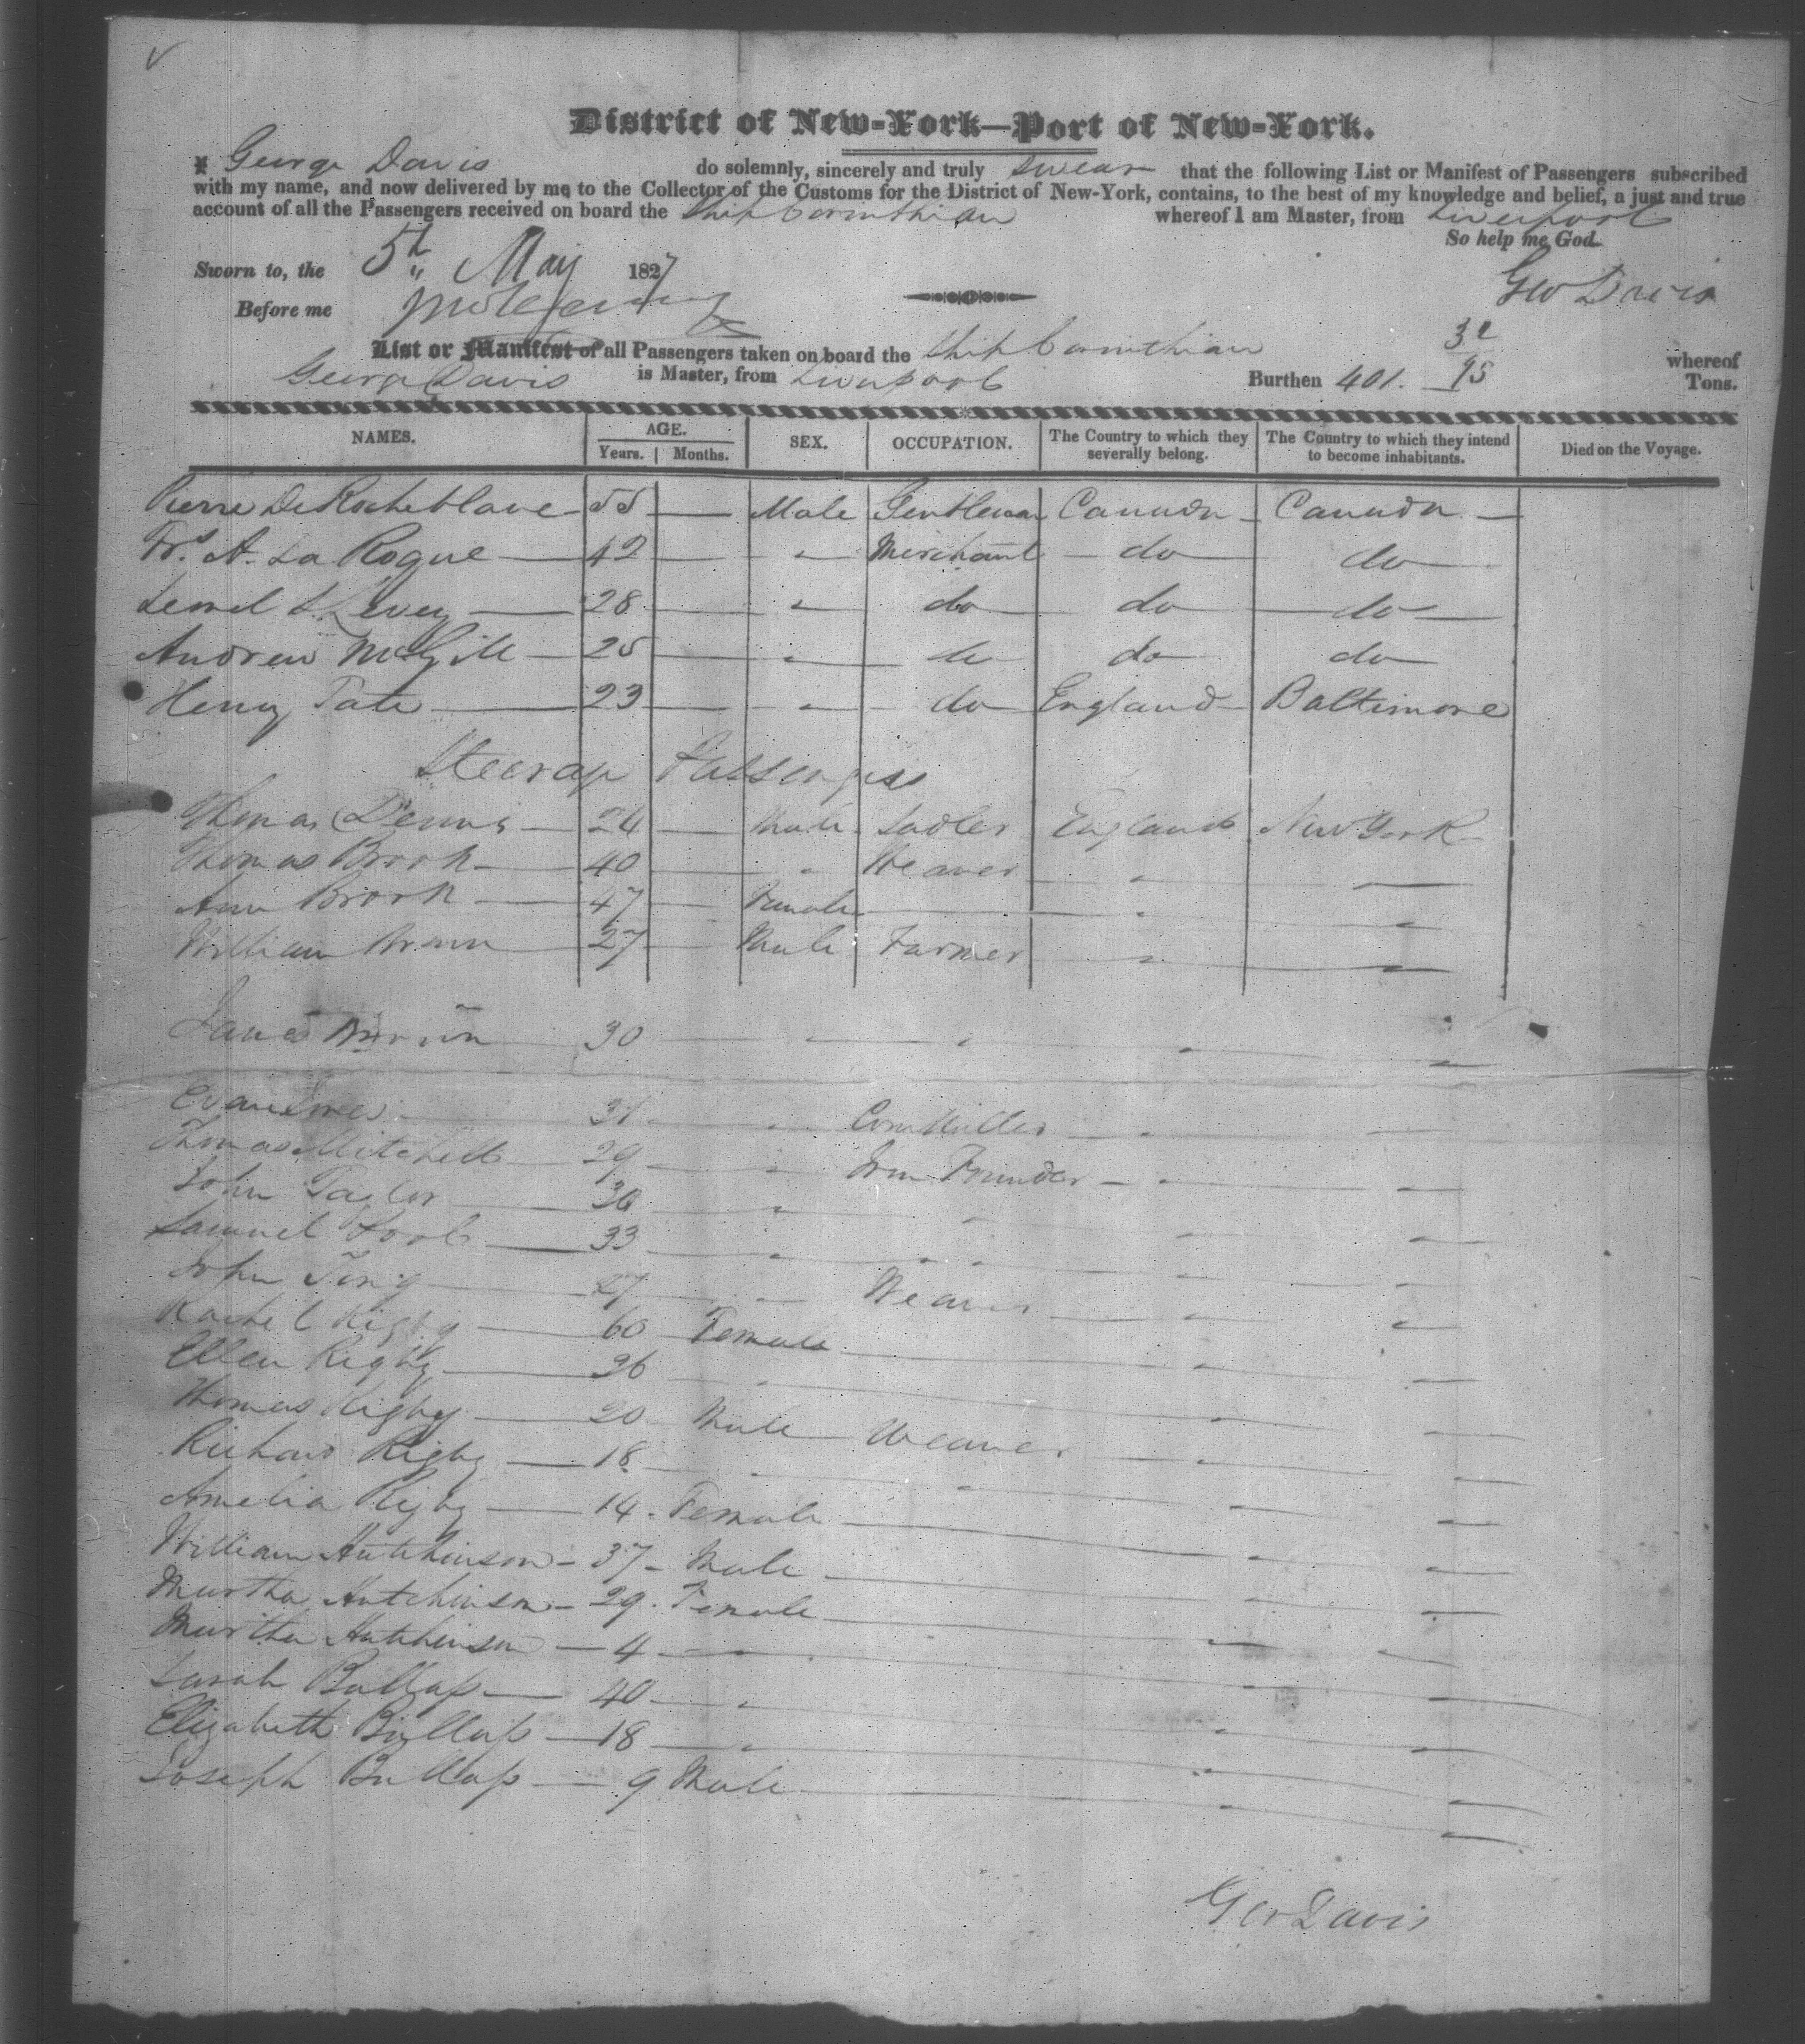 District of New-York—Port of New-York.
I George Davis do solemnly, sincerely and truly swear that the following List or Manifest of Passengers subscribed
with my name, and now delivered by me to the Collector of the Customs for the District of New-York, contains, to the best of my knowledge and belief, a just and true
account of all the Passengers received on board the Ship Corinthian whereof I am Master, from Liverpool
So help me God.
Sworn to, the 5th May 1827 Geo Davis
Before me
List or Manifest of all Passengers taken on board the Ship Corinthian whereof
George Davis is Master, from Liverpool Burthen 401. 32/95 Tons.
NAMES. AGE. Years. Months. SEX. OCCUPATION. The Country to which they severally belong. The Country to which they intend to become inhabitants. Died on the Voyage.
Pierre De Rocheblave 55 — Male Gentleman Canada Canada
Frs. A. La Roque 42 — " Merchant do do
28 — " do do do
Andrew McGill 25 — " do do do
Henry Tate 23 — " do England Baltimore
Steerage Passengers
Thomas Dennis 24 — Male Sadler England New York
Thomas Brook 40 — " Weaver " "
Ann Brook 47 — Female — " "
William Brown 27 — Male Farmer " "
James Brown 30 — " " " "
Evan Jones 31 " Corn Miller " "
Thomas Mitchell 29 " Iron Founder " "
John Taylor " " " "
Samuel 33 " " " "
John 27 " Weaver " "
Rachel Rigby 60 Female — " "
Ellen Rigby 26 " — " "
Thomas Rigby 20 Male Weaver " "
Richard Rigby 18 " " " "
Amelia Rigby 14 Female — " "
William Hutchinson 37 Male — " "
Martha Hutchinson 29 Female — " "
Martha Hutchinson 4 " — " "
Sarah Bullap 40 " — " "
Elizabeth Bullap 18 " — " "
Joseph Bullap 9 Male — " "
Geo Davis